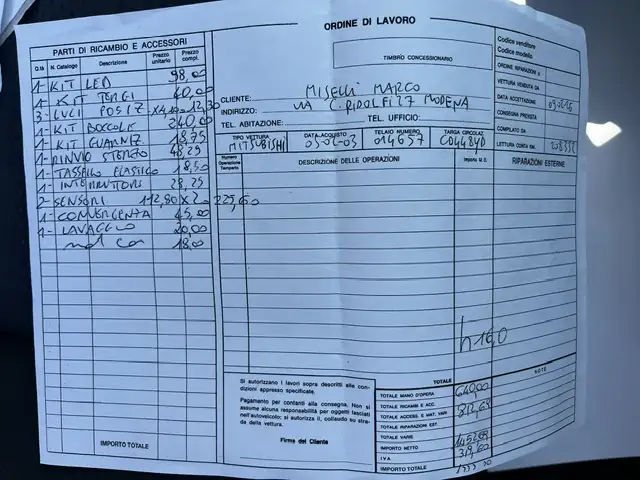 ORDINE DI LAVORO
PARTI DI RICAMBIO E ACCESSORI
Q.tà N. Catalogo Descrizione Prezzo unitario Prezzo compl.
1- KIT LED 98,00
1- KIT TERGI 40,00
3- LUCI POSIZ x4,10 12,30
1- KIT BOCCOLE 240,00
1- KIT GUARNIZ. 18,75
1- RINVIO STERZO 48,25
1- TASSELLO ELASTICO 18,50
1- INTERRUTTORI 28,25
2- SENSORI 112,80 x 2 225,60
1- CONVERGENZA 45,00
1- LAVAGGIO 20,00
18,00
IMPORTO TOTALE
TIMBRO CONCESSIONARIO
Codice venditore
Codice modello
ORDINE RIPARAZIONI N.
VETTURA VENDUTA DA
DATA ACCETTAZIONE
CONSEGNA PREVISTA
COMPILATO DA
LETTURA CONTA KM.
CLIENTE: MISELLI MARCO
INDIRIZZO: VIA C. RIDOLFI 27 MODENA
TEL. ABITAZIONE: TEL. UFFICIO:
TIPO VETTURA MITSUBISHI
DATA ACQUISTO 05-02-03
TELAIO NUMERO 014657
TARGA CIRCOLAZ. CD448YD
Numero Operazione Tempario
DESCRIZIONE DELLE OPERAZIONI
Importo M.O.
RIPARAZIONI ESTERNE
h 16,0
TOTALE
NOTE
Si autorizzano i lavori sopra descritti alle condizioni appresso specificate.
Pagamento per contanti alla consegna. Non si
assume alcuna responsabilità per oggetti lasciati
nell'autoveicolo; si autorizza il, collaudo su strada della vettura.
Firma del Cliente
TOTALE MANO D'OPERA 640,00
TOTALE RICAMBI E ACC. 812,65
TOTALE ACCESS. E MAT. VARI
TOTALE RIPARAZIONI EST.
TOTALE VARIE
IMPORTO NETTO
IVA 319,60
IMPORTO TOTALE